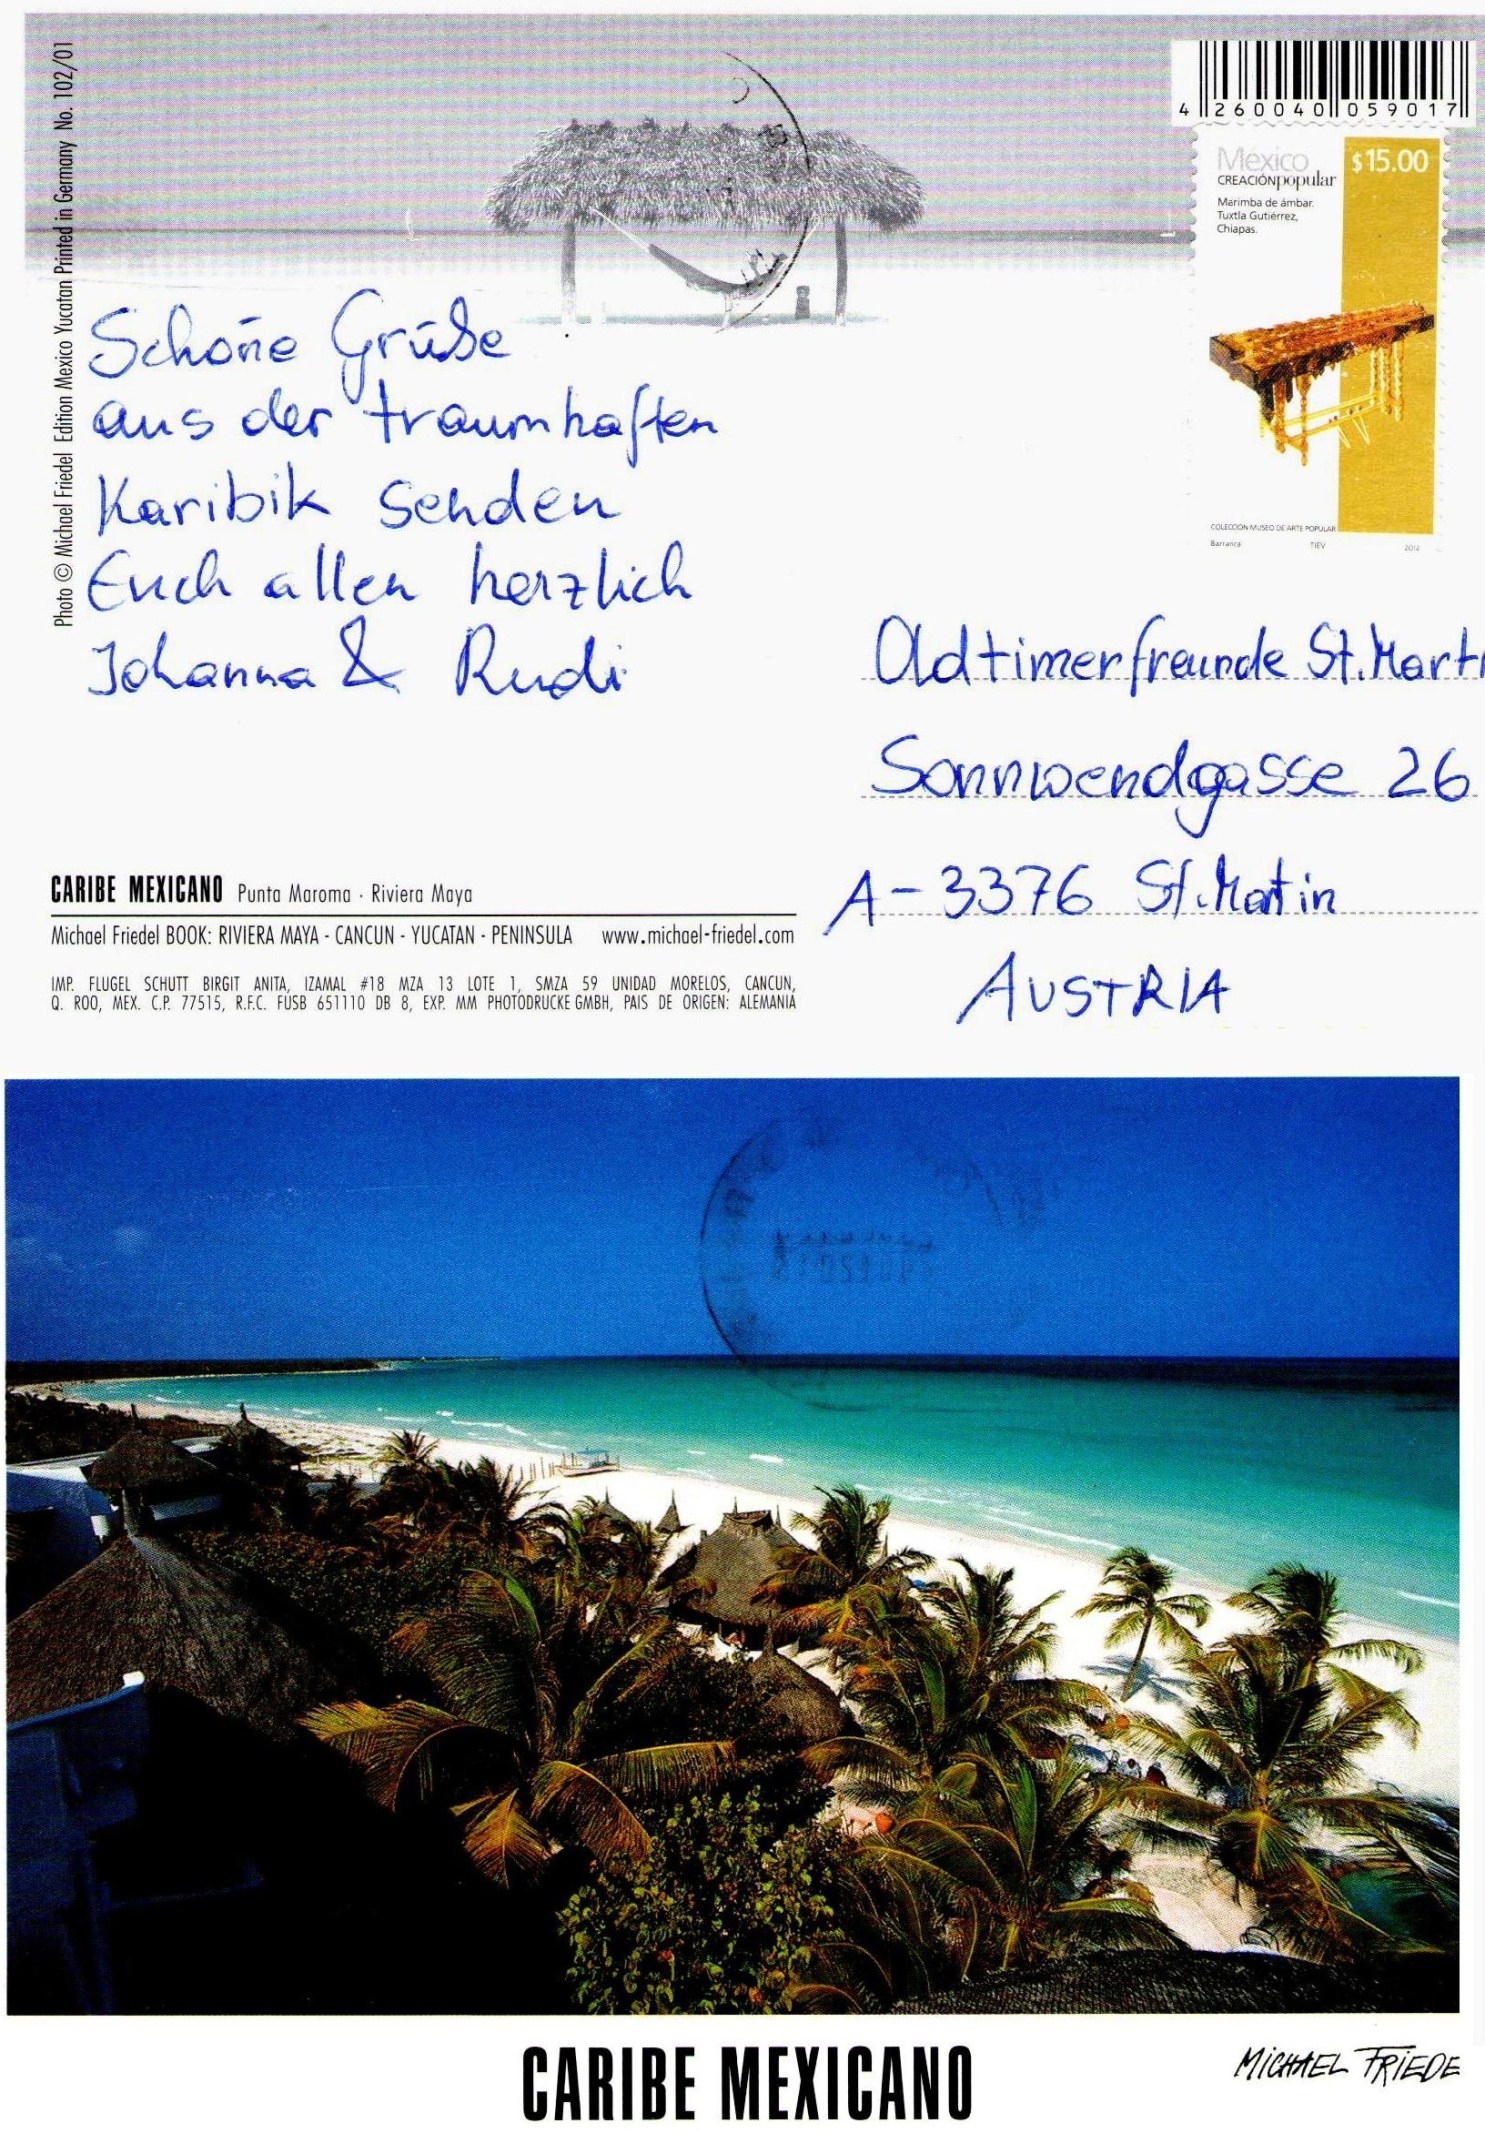 Photo © Michael Friedel Edition Mexico Yucatan Printed in Germany No. 102/01
4 260040 059017
México
CREACIÓNpopular
$15.00
Marimba de ámbar.
Tuxtla Gutiérrez,
Chiapas.
COLECCIÓN MUSEO DE ARTE POPULAR
Barranca TIEV 2012
Schöne Grüße
aus der traumhaften
Karibik senden
Euch allen herzlich
Johanna & Rudi
Oldtimerfreunde St. Marti
Sonnwendgasse 26
A-3376 St. Martin
AUSTRIA
CARIBE MEXICANO Punta Maroma · Riviera Maya
Michael Friedel BOOK: RIVIERA MAYA - CANCUN - YUCATAN - PENINSULA www.michael-friedel.com
IMP. FLUGEL SCHUTT BIRGIT ANITA, IZAMAL #18 MZA 13 LOTE 1, SMZA 59 UNIDAD MORELOS, CANCUN,
Q. ROO, MEX. C.P. 77515, R.F.C. FUSB 651110 DB 8, EXP. MM PHOTODRUCKE GMBH, PAIS DE ORIGEN: ALEMANIA
CARIBE MEXICANO
MICHAEL FRIEDE